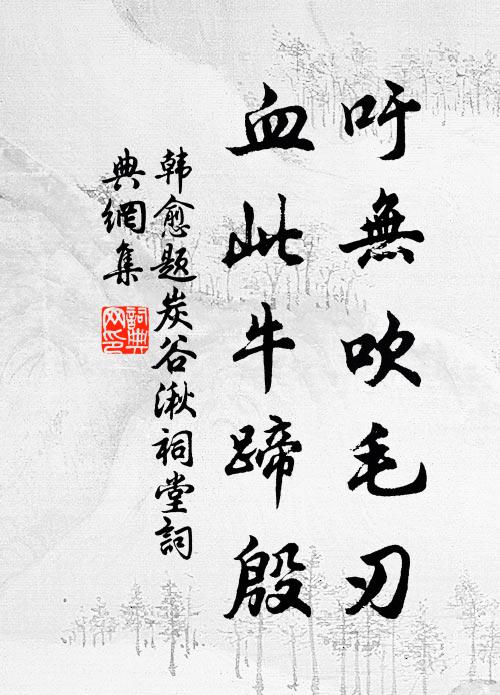 吁無吹毛刃
血此牛蹄殷
韩愈题炭谷湫祠堂詞
典網集
詞典网印